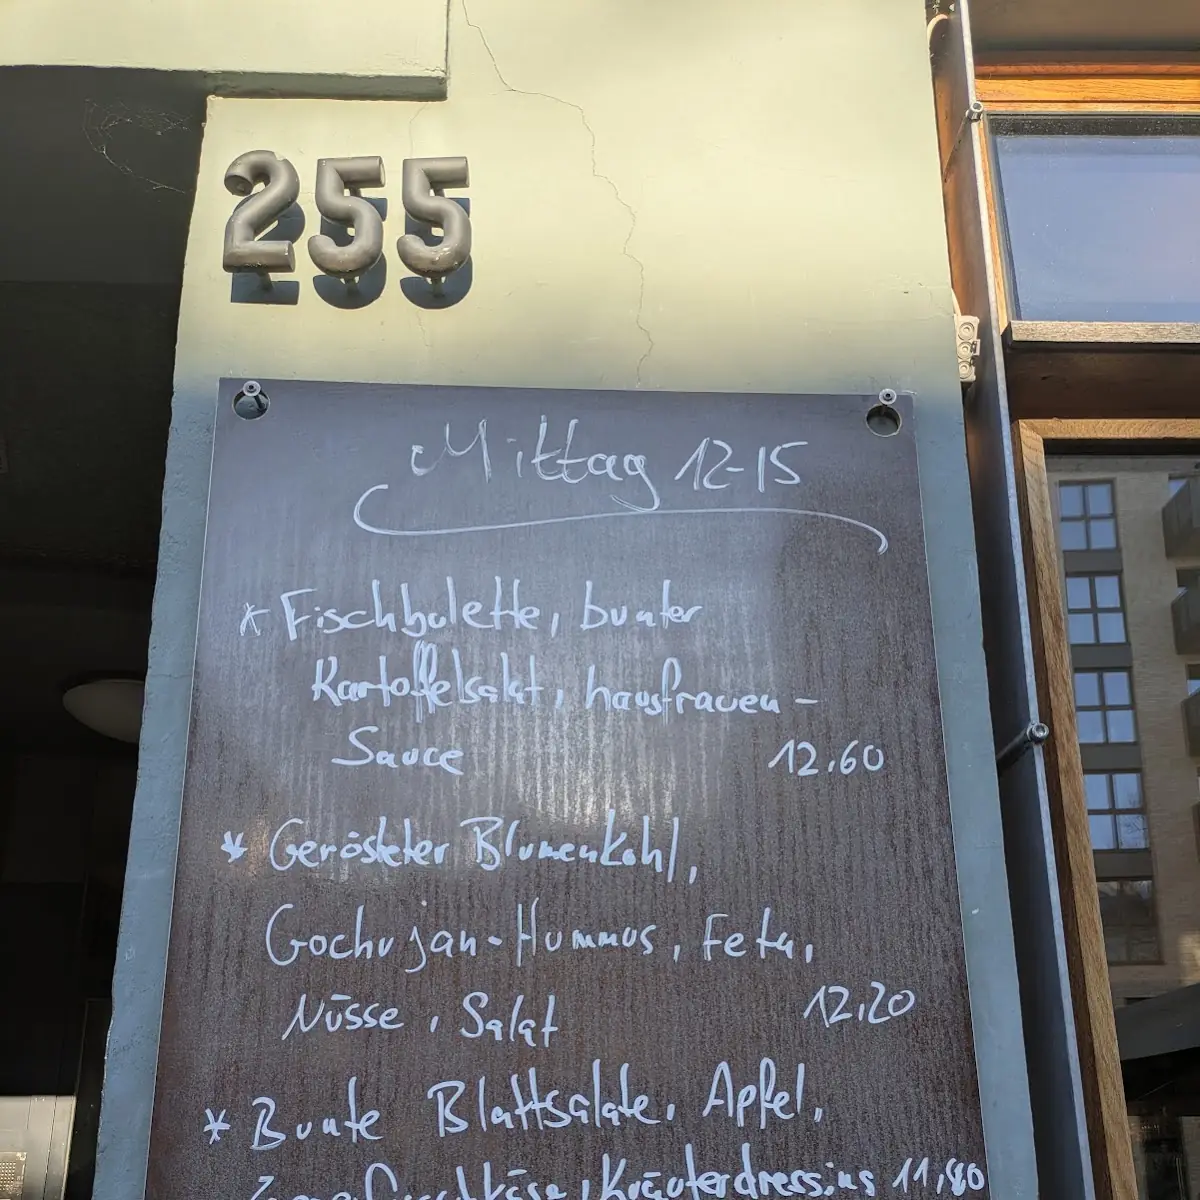 255
Mittag 12-15
* Fischbulette, bunter
Kartoffelsalat, hausfrauen-
Sauce 12,60
* Gerösteter Blumenkohl,
Gochujan-Hummus, Feta,
Nüsse, Salat 12,20
* Bunte Blattsalate, Apfel,
Kräuterdressing 11,80